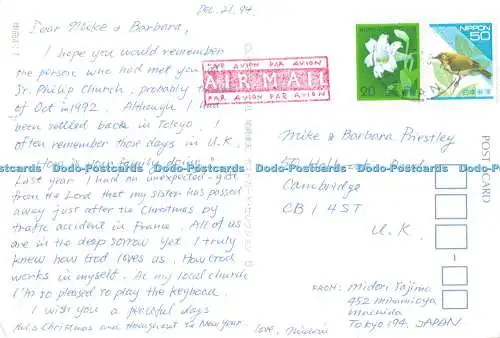 Dec. 21. 94.
Dear Mike & Barbara,
I hope you would remember
the person who had met you
St. Philip Church, probably
of Oct in 1992. Although I had
been settled back in Tokyo. I
often remember those days in U.K.
is your family doing?
Last year I had an unexpected
from the Lord that my sister has passed
away just after the Christmas by
traffic accident in France. All of us
are in the deep sorrow yet I truly
knew how God loves us. How God
works in myself. At my local church
I'm so pleased to play the keyboad.
I wish you a peaceful days
this Christmas and throughout in New year.
love, midori
PAR AVION PAR AVION
AIR MAIL
PAR AVION PAR AVION
20
NIPPON
50
日本郵便
POST CARD
Mike & Barbara Birstley
Road
Cambridge
CB1 4ST
U.K.
FROM: midori Yajima
452 minamioya
machida
Tokyo 194. JAPAN
Dodo-Postcards Dodo-Postcards Dodo-Postcards Dodo-Postcards